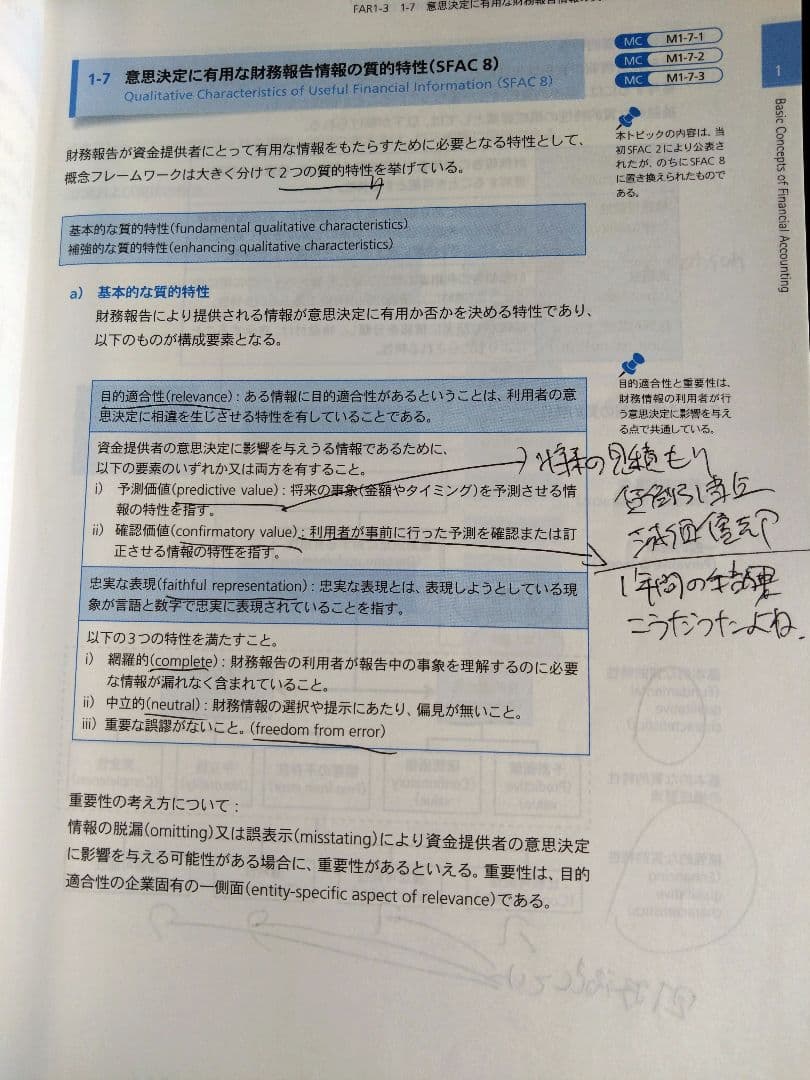 FAR1-3 1-7 意思決定に有用な財務報告情報の質
1-7 意思決定に有用な財務報告情報の質的特性(SFAC 8)
Qualitative Characteristics of Useful Financial Information (SFAC 8)
MC M1-7-1
MC M1-7-2
MC M1-7-3
1
Basic Concepts of Financial Accounting
本トピックの内容は、当
初SFAC 2により公表さ
れたが、のちにSFAC 8
に置き換えられたもので
ある。
財務報告が資金提供者にとって有用な情報をもたらすために必要となる特性として、
概念フレームワークは大きく分けて2つの質的特性を挙げている。
基本的な質的特性(fundamental qualitative characteristics)
補強的な質的特性(enhancing qualitative characteristics)
a) 基本的な質的特性
財務報告により提供される情報が意思決定に有用か否かを決める特性であり、
以下のものが構成要素となる。
目的適合性と重要性は、
財務情報の利用者が行
う意思決定に影響を与え
る点で共通している。
目的適合性(relevance):ある情報に目的適合性があるということは、利用者の意
思決定に相違を生じさせる特性を有していることである。
資金提供者の意思決定に影響を与えうる情報であるために、
以下の要素のいずれか又は両方を有すること。
i) 予測価値(predictive value):将来の事象(金額やタイミング)を予測させる情
報の特性を指す。
ii) 確認価値(confirmatory value):利用者が事前に行った予測を確認または訂
正させる情報の特性を指す。
将来の見積もり
貸倒引当金
減価償却
1年間の結果
こうだったよね。
忠実な表現(faithful representation):忠実な表現とは、表現しようとしている現
象が言語と数字で忠実に表現されていることを指す。
以下の3つの特性を満たすこと。
i) 網羅的(complete):財務報告の利用者が報告中の事象を理解するのに必要
な情報が漏れなく含まれていること。
ii) 中立的(neutral):財務情報の選択や提示にあたり、偏見が無いこと。
iii) 重要な誤謬がないこと。(freedom from error)
重要性の考え方について:
情報の脱漏(omitting)又は誤表示(misstating)により資金提供者の意思決定
に影響を与える可能性がある場合に、重要性があるといえる。重要性は、目的
適合性の企業固有の一側面(entity-specific aspect of relevance)である。